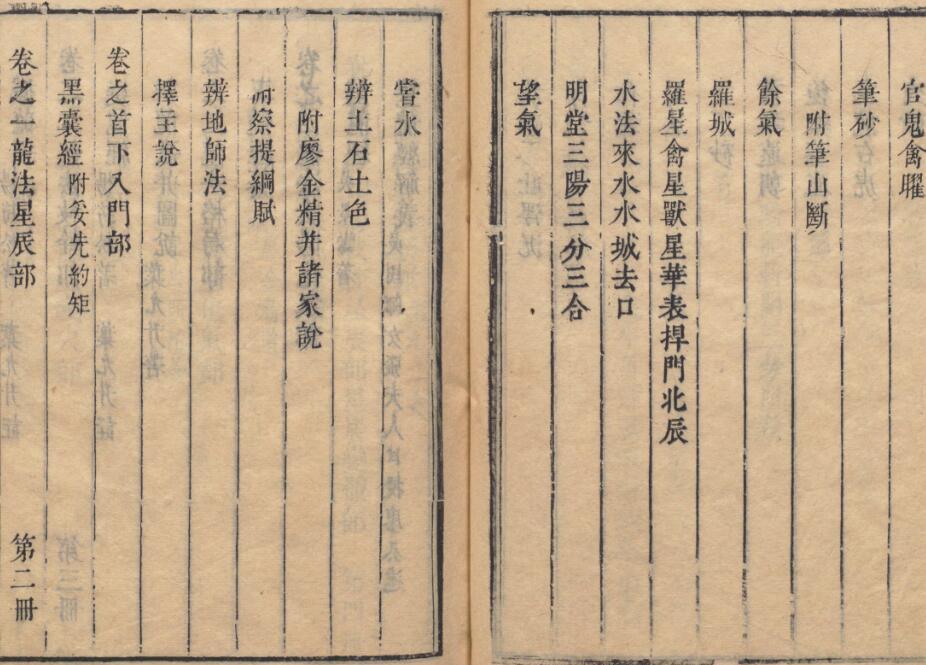 官鬼禽曜
筆砂
附筆山斷
餘氣
羅城
羅星禽星獸星華表捍門北辰
水法來水水城去口
明堂三陽三分三合
望氣
嘗水
辨土石土色
附廖金精并諸家說
附察提綱賦
辨地師法
擇主說
卷之首下入門部
黑囊經附妥先約矩
卷之一龍法星辰部 第二冊